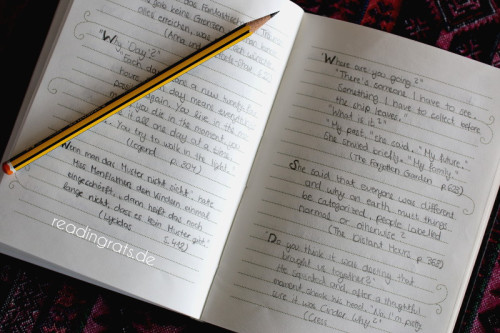 das Fantastische
job keine Grenzen
alles erreichen, was
(Alma und
"Why 'Day'?"
"Each day
have
day means everything
again. You live in the
you die in the moment, you
it all one day at a time.
You try to walk in the light."
(Legend p. 304)
"Wenn man das Muster nicht sieht", hatte
Miss Menfleathers den Kindern einmal
eingeschärft, "dann heißt das noch
lange nicht, dass es kein Muster gibt."
(Lyktos S. 419)
readingrats.de
"Where are you going?"
"There's someone I have to see.
Something I have to collect before
the ship leaves."
"What is it?"
"My past," she said. "My future."
She smiled briefly. "My family."
(The Forgotten Garden p. 628)
She said that everyone was different
and why on earth must things
be categorised, people labelled
normal or otherwise?
(The Distant Hours p. 368)
"Do you think it was destiny that
brought us together?"
He squinted and, after a thoughtful
moment, shook his head. "No. I'm pretty
sure it was Cinder. Why?"
(Cress